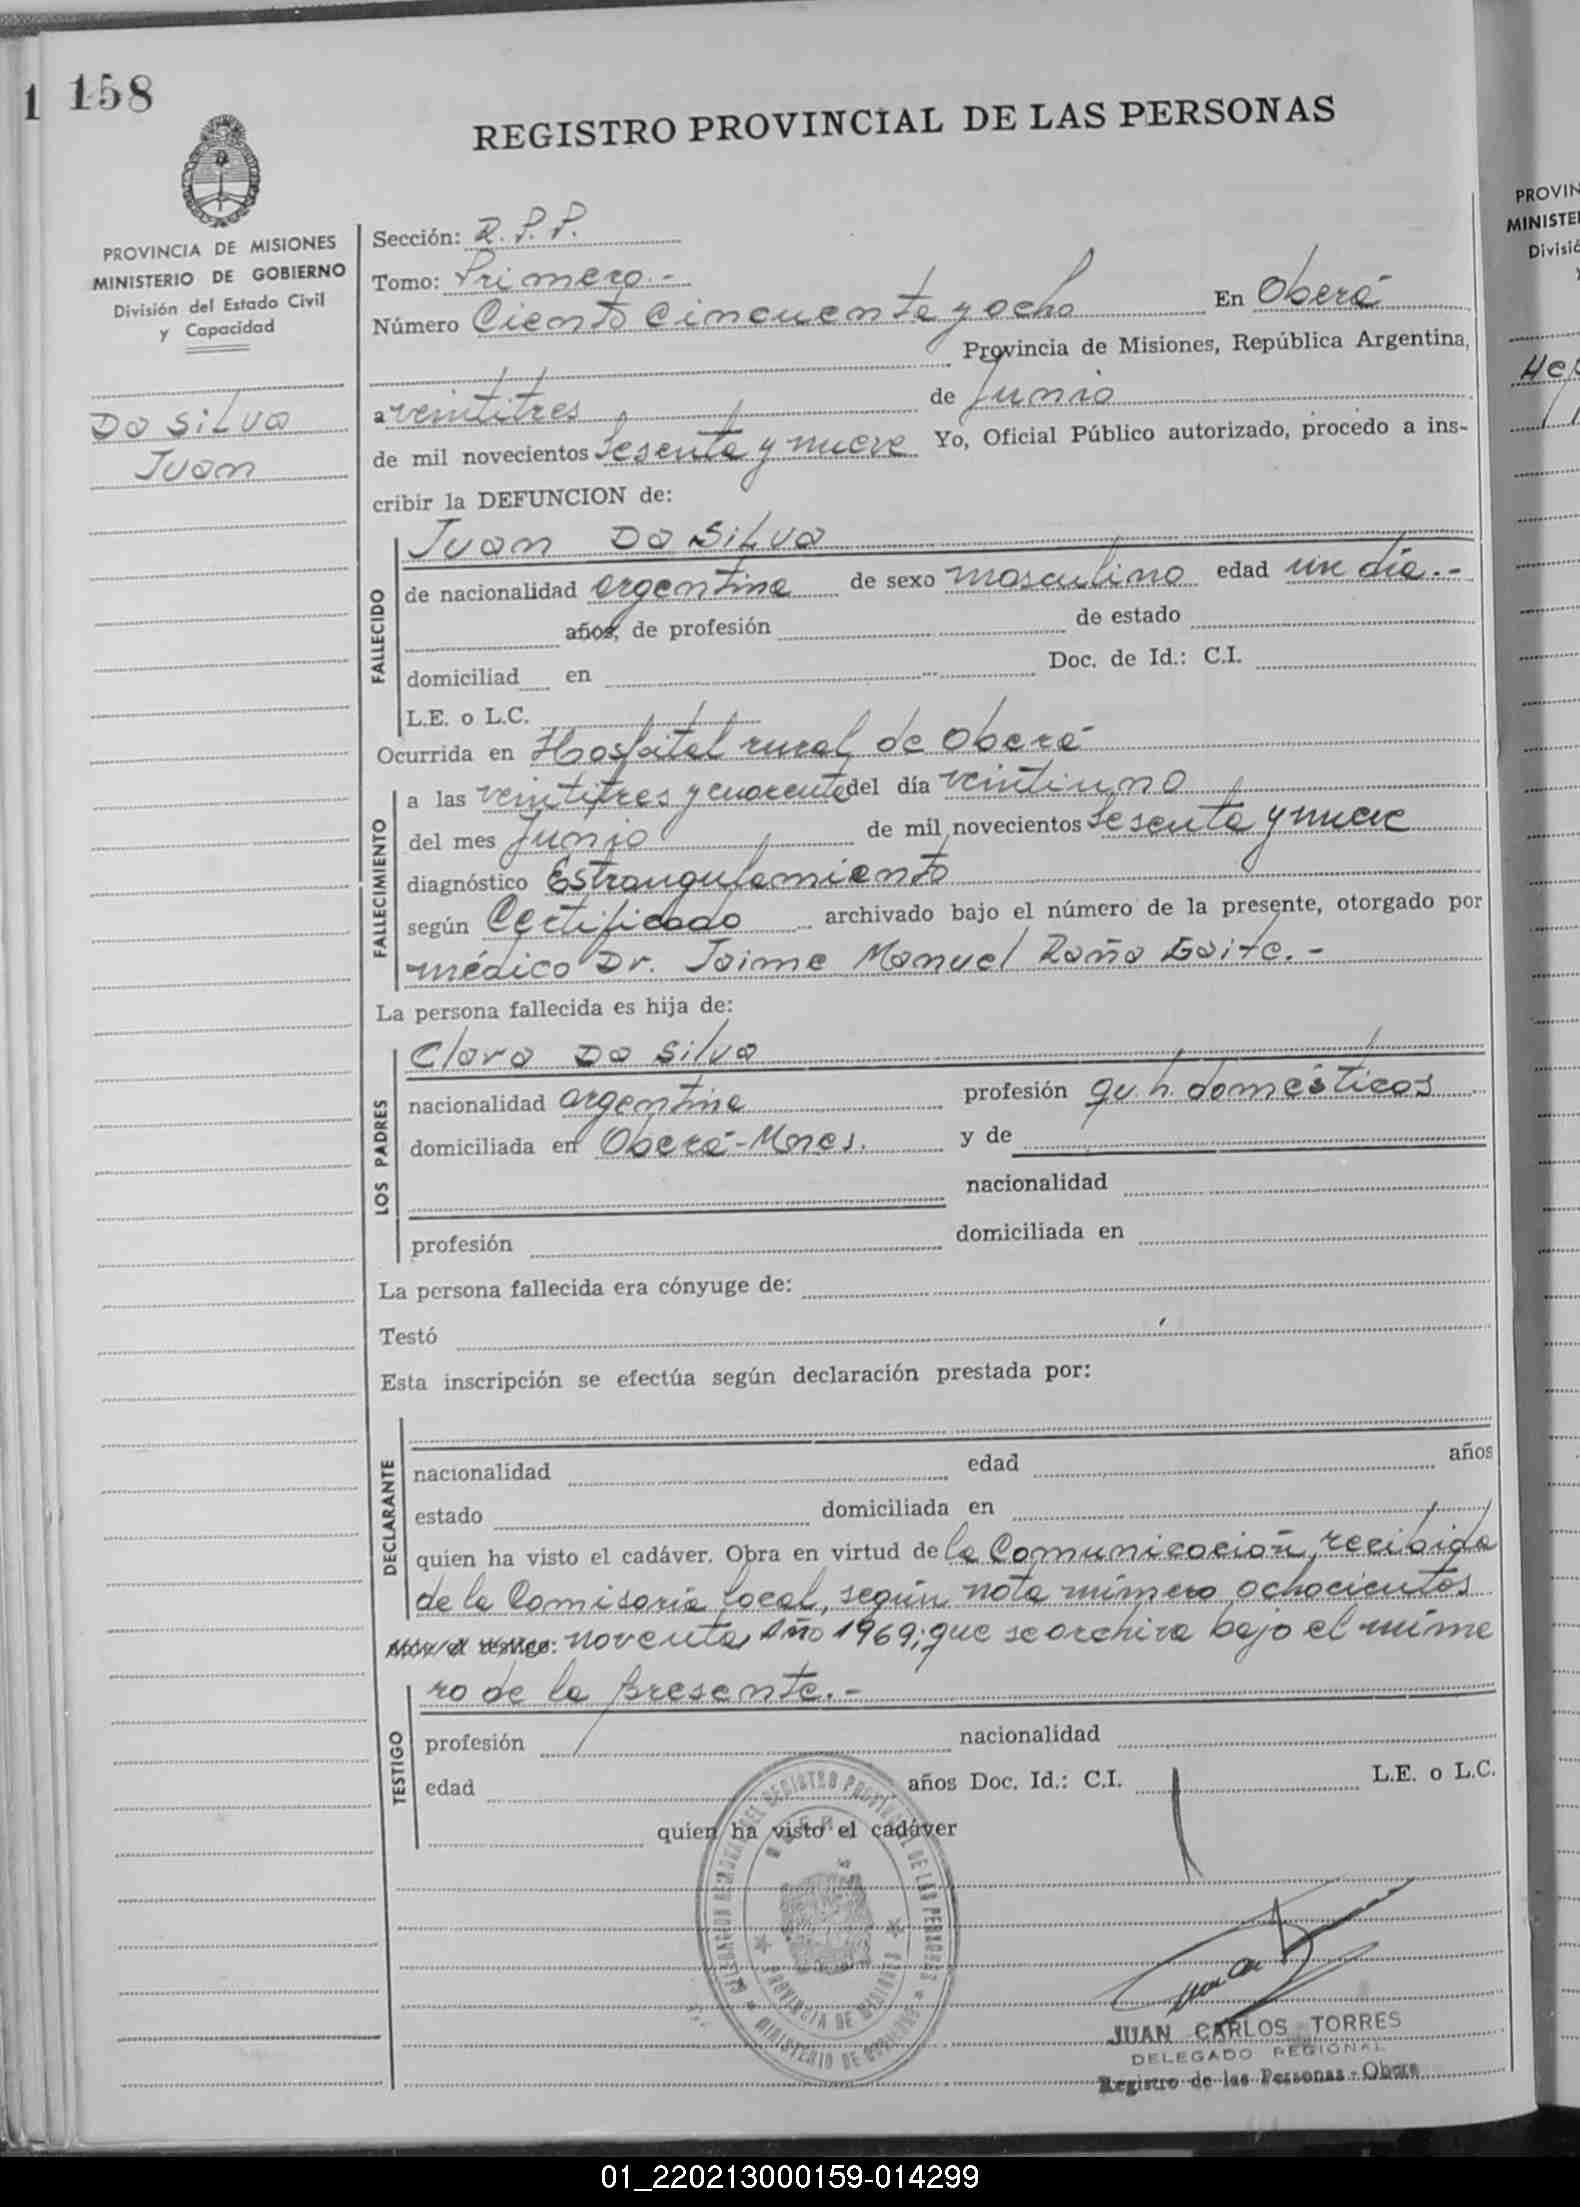 1 158
REGISTRO PROVINCIAL DE LAS PERSONAS
PROVINCIA DE MISIONES
MINISTERIO DE GOBIERNO
División del Estado Civil
y Capacidad
Da Silva
Juan
Sección: R.P.P.
Tomo: Primero.-
Número Ciento Cincuenta y ocho En Oberá
Provincia de Misiones, República Argentina,
a veintitres de Junio
de mil novecientos Sesenta y nueve Yo, Oficial Público autorizado, procedo a ins-
cribir la DEFUNCION de:
FALLECIDO
Juan Da Silva
de nacionalidad argentina de sexo masculino edad un día.-
años, de profesión de estado
domiciliad en Doc. de Id.: C.I.
L.E. o L.C.
Ocurrida en Hospital rural de Oberá
FALLECIMIENTO
a las veintitres y cuarenta del día veintiuno
del mes Junio de mil novecientos Sesenta y nueve
diagnóstico Estrangulamiento
según Certificado archivado bajo el número de la presente, otorgado por
médico Dr. Jaime Manuel Raña Gaite.-
La persona fallecida es hija de:
LOS PADRES
Clara Da Silva
nacionalidad argentina profesión qu. h. domésticos
domiciliada en Oberá-Mnes. y de
nacionalidad
profesión domiciliada en
La persona fallecida era cónyuge de:
Testó
Esta inscripción se efectúa según declaración prestada por:
DECLARANTE
nacionalidad edad años
estado domiciliada en
quien ha visto el cadáver. Obra en virtud de la Comunicación, recibida
de la Comisaría local, según nota número ochocientos
noventa Año 1969; que se archiva bajo el núme
ro de la presente.-
TESTIGO
profesión nacionalidad
edad años Doc. Id.: C.I. L.E. o L.C.
quien ha visto el cadáver
REGISTRO PROVINCIAL DE LAS PERSONAS
PROVINCIA DE MISIONES
MINISTERIO DE GOBIERNO
JUAN CARLOS TORRES
DELEGADO REGIONAL
Registro de las Personas - Obera
PROVIN
MINISTE
Divisió
01_220213000159-014299